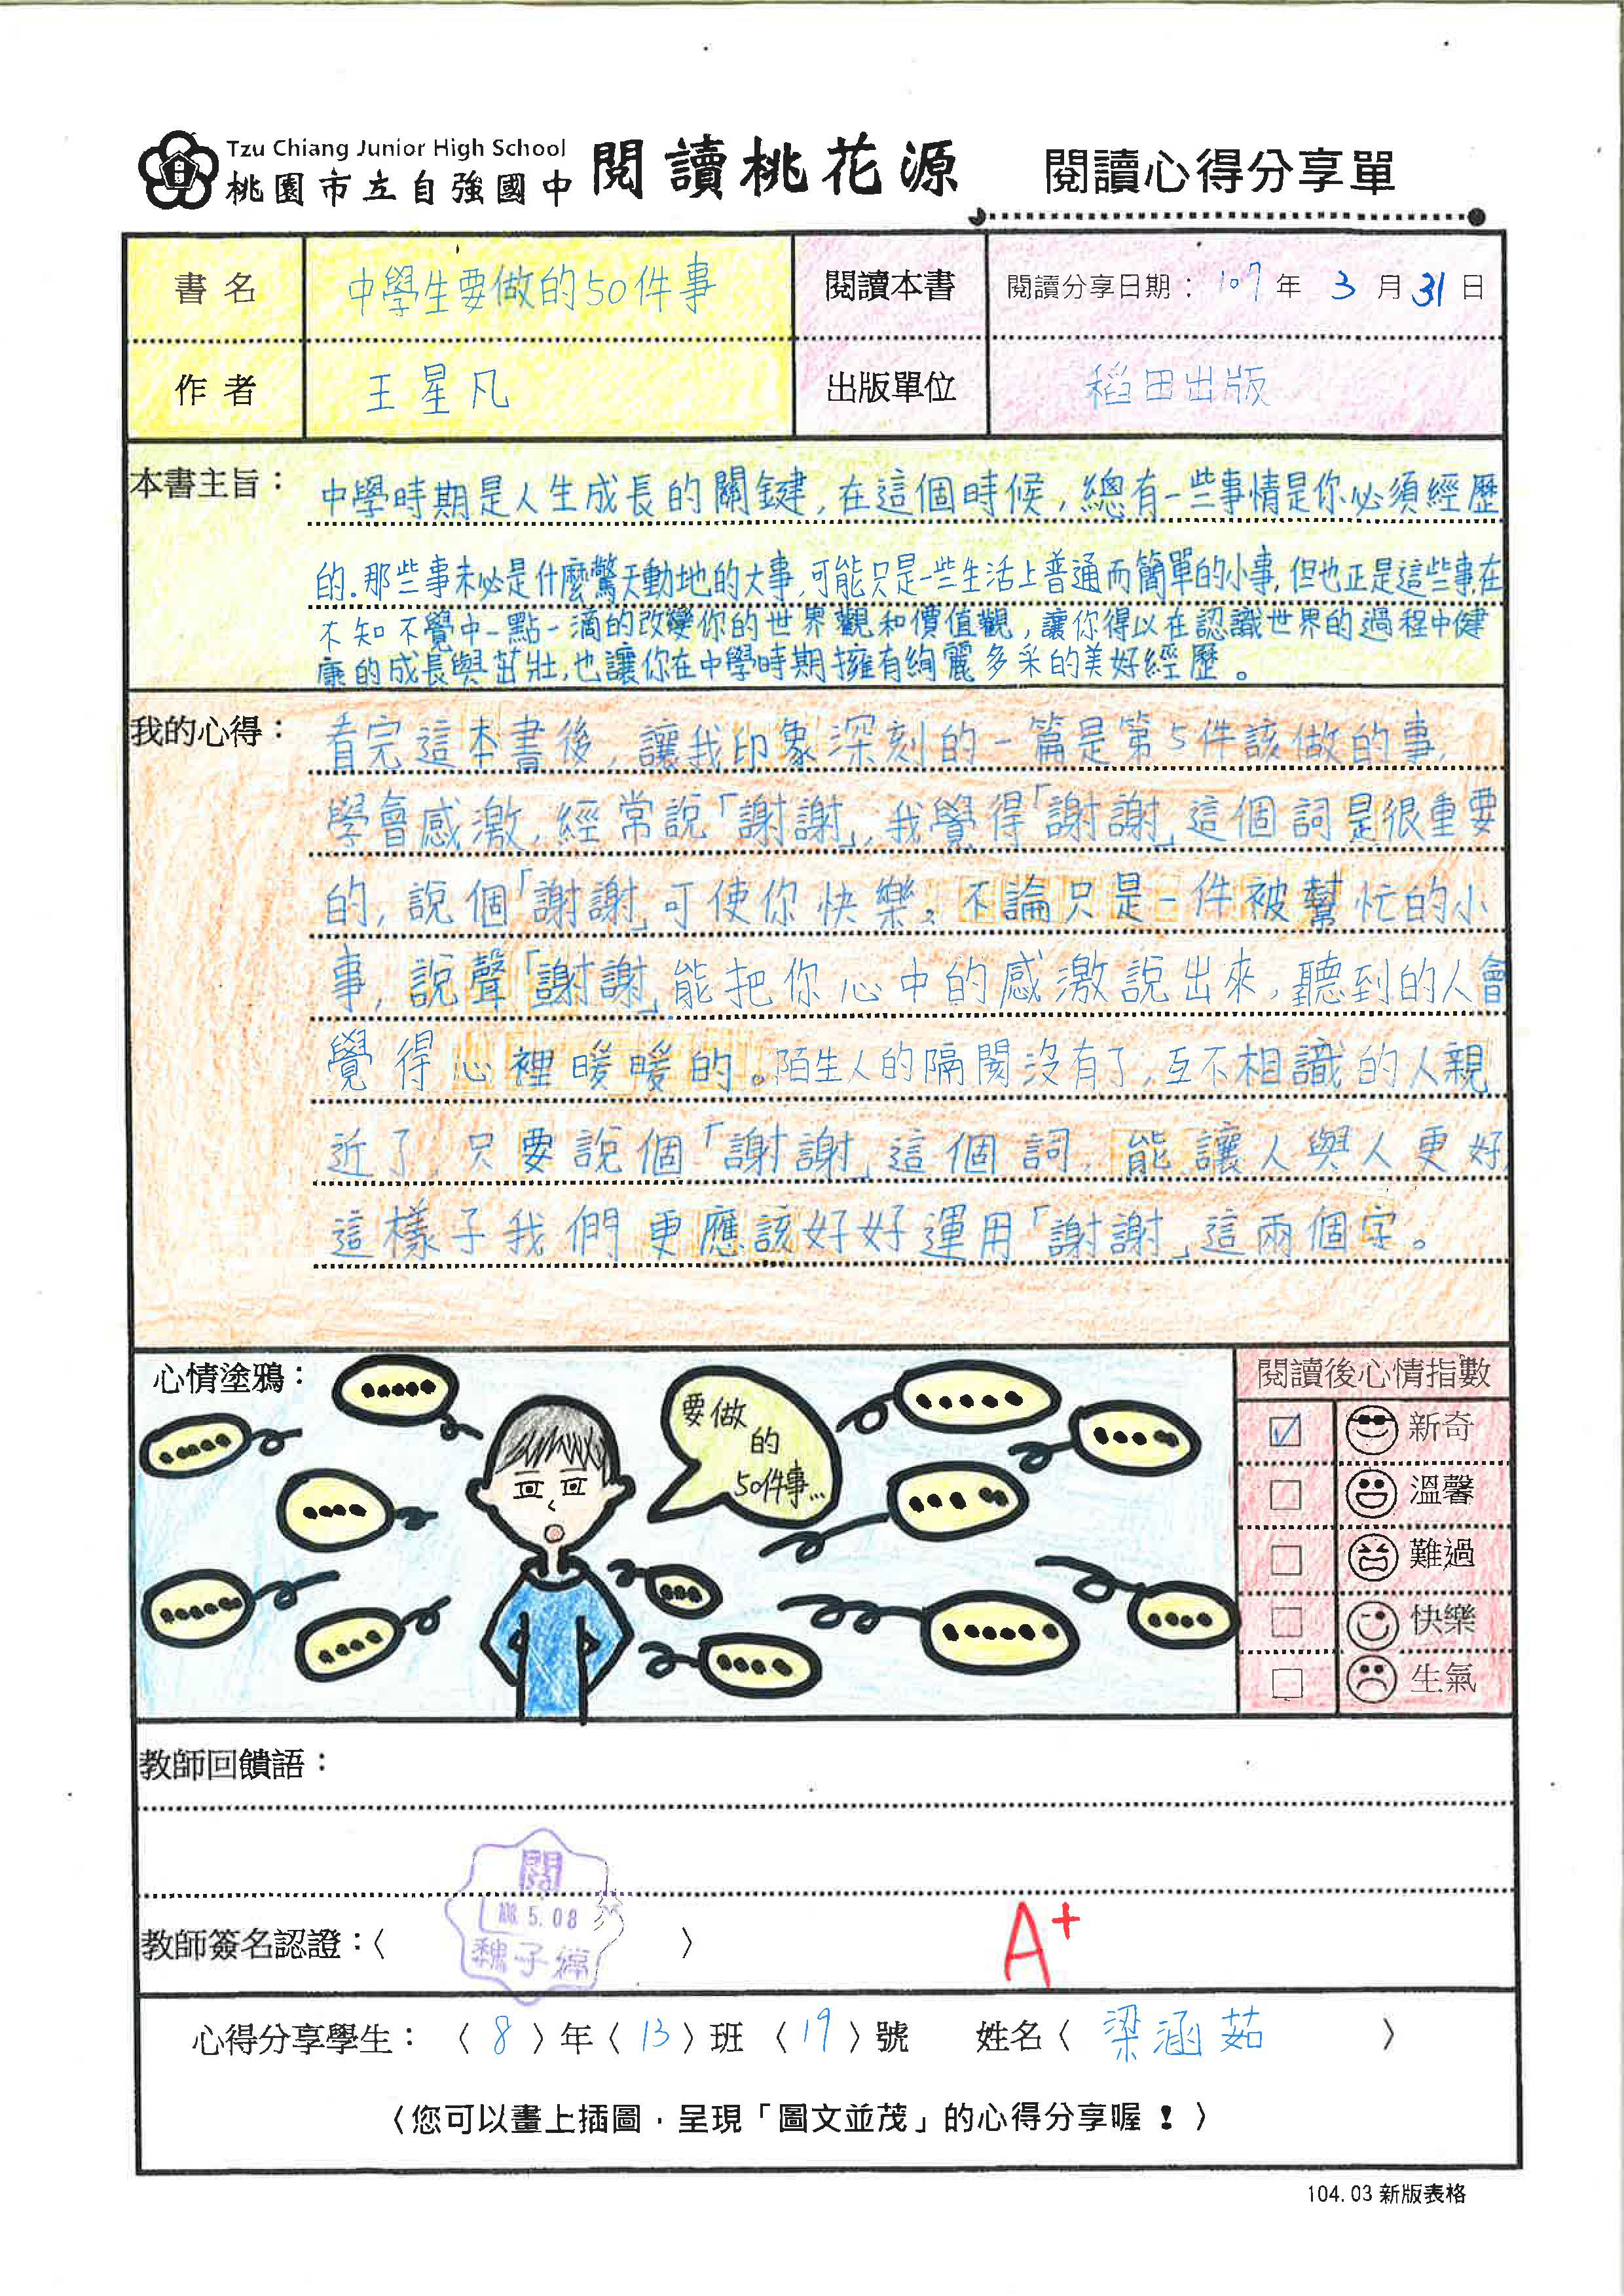 Tzu Chiang Junior High School
桃園市立自強國中 閱讀桃花源 閱讀心得分享單
書名 中學生要做的50件事 閱讀本書 閱讀分享日期：107年3月31日
作者 王星凡 出版單位 稻田出版
本書主旨：中學時期是人生成長的關鍵,在這個時候,總有一些事情是你必須經歷
的.那些事未必是什麼驚天動地的大事,可能只是一些生活上普通而簡單的小事,但也正是這些事在
不知不覺中一點一滴的改變你的世界觀和價值觀,讓你得以在認識世界的過程中健
康的成長與茁壯,也讓你在中學時期擁有絢麗多采的美好經歷。
我的心得：看完這本書後,讓我印象深刻的一篇是第5件該做的事,
學會感激,經常說「謝謝」,我覺得「謝謝」這個詞是很重要
的,說個「謝謝」可使你快樂。不論只是一件被幫忙的小
事,說聲「謝謝」能把你心中的感激說出來,聽到的人會
覺得心裡暖暖的。陌生人的隔閡沒有了,互不相識的人親
近了,只要說個「謝謝」這個詞,能讓人與人更好,
這樣子我們更應該好好運用「謝謝」這兩個字。
心情塗鴉：
要做
的
50件事...
閱讀後心情指數
新奇
溫馨
難過
快樂
生氣
教師回饋語：
閱
5.08
魏子
教師簽名認證：〈 〉 A+
心得分享學生：〈8〉年〈13〉班〈19〉號 姓名〈梁涵茹〉
〈您可以畫上插圖，呈現「圖文並茂」的心得分享喔！〉
104.03新版表格